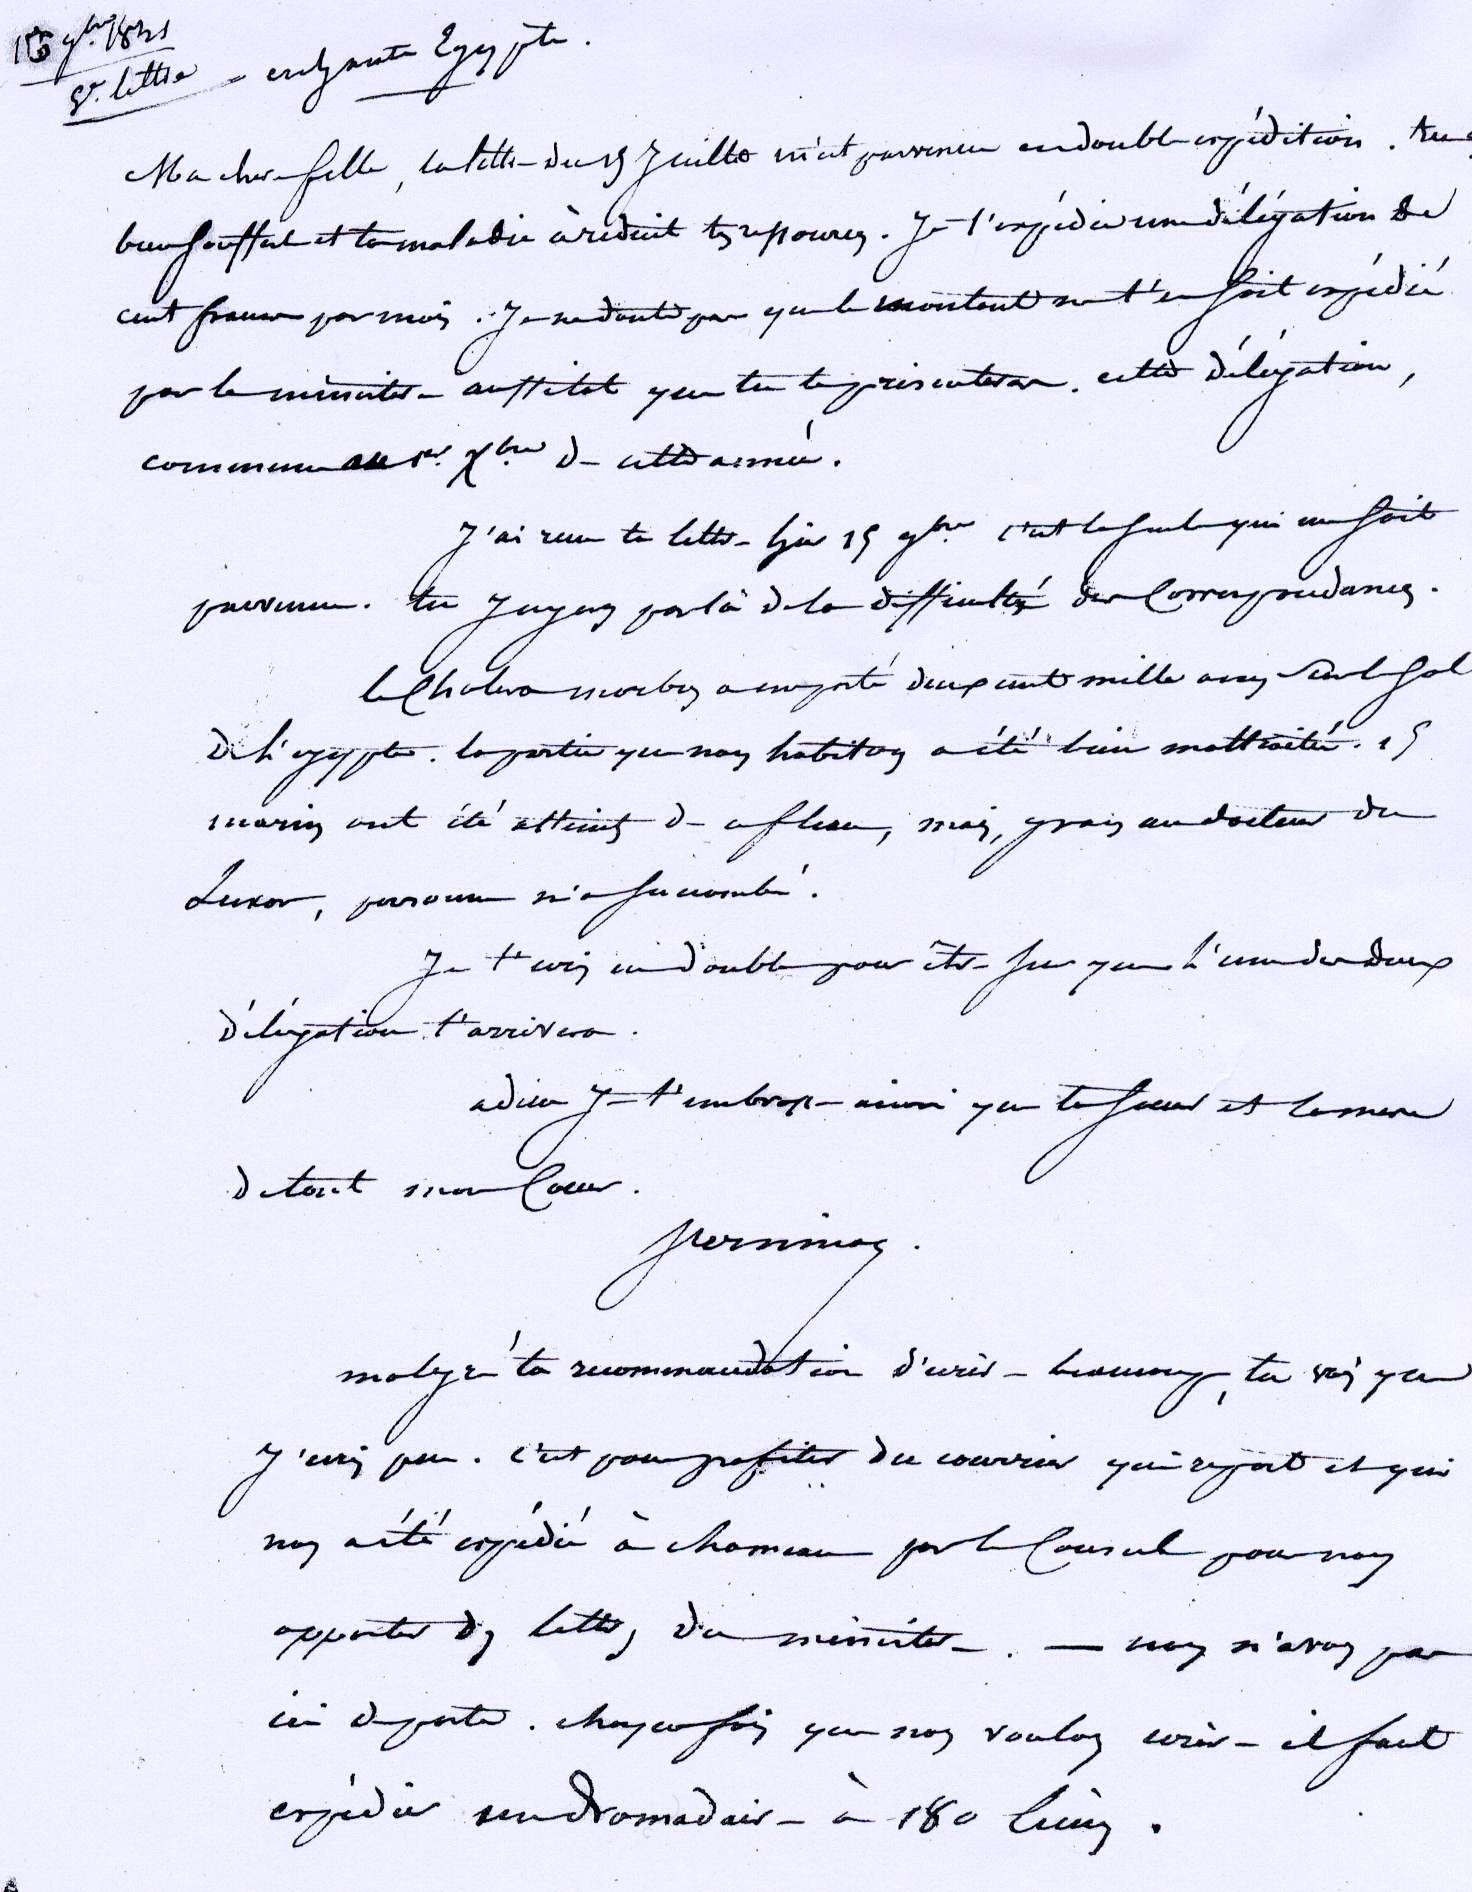 16 9bre 1831
8e lettre - en haute Egypte.
Ma chere fille, ta lettre du 15 Juillet m'est parvenue en double expédition. tu as
bien souffert et ta maladie a reduit tes ressources. Je t'expédie une délégation de
cent francs par mois. Je ne doute pas que le montant ne t'en soit expédié
par le ministre aussitot que tu te presenteras. cette délégation,
commence au 1er Xbre de cette année.
J'ai recu ta lettre hier 15 9bre c'est la seule qui me soit
parvenue. tu Jugeras par là de la difficulté des Correspondances.
le Cholera morbus a emporté deux cent mille ames sur le sol
De L'egypte. la partie que nous habitons a été bien maltraitée. 15
marins ont été atteints de ce fleau, mais, graces au docteur du
Luxor, personne n'a succombé.
Je t'ecris en double pour être sur que L'une des deux
délégation t'arrivera.
adieu Je t'embrasse ainsi que ta soeur et ta mere
de tout mon Coeur.
JVerninac.
malgré ta recommandation d'ecrire beaucoup, tu vois que
J'ecris peu. c'est pour profiter du courrier qui repart et qui
nous a été expédié à chameau par le Consul pour nous
apporter des lettres du ministre. — nous n'avons pas
ici de poste. chaque fois que nous voulons ecrire il faut
expédier un dromadaire à 180 lieues.